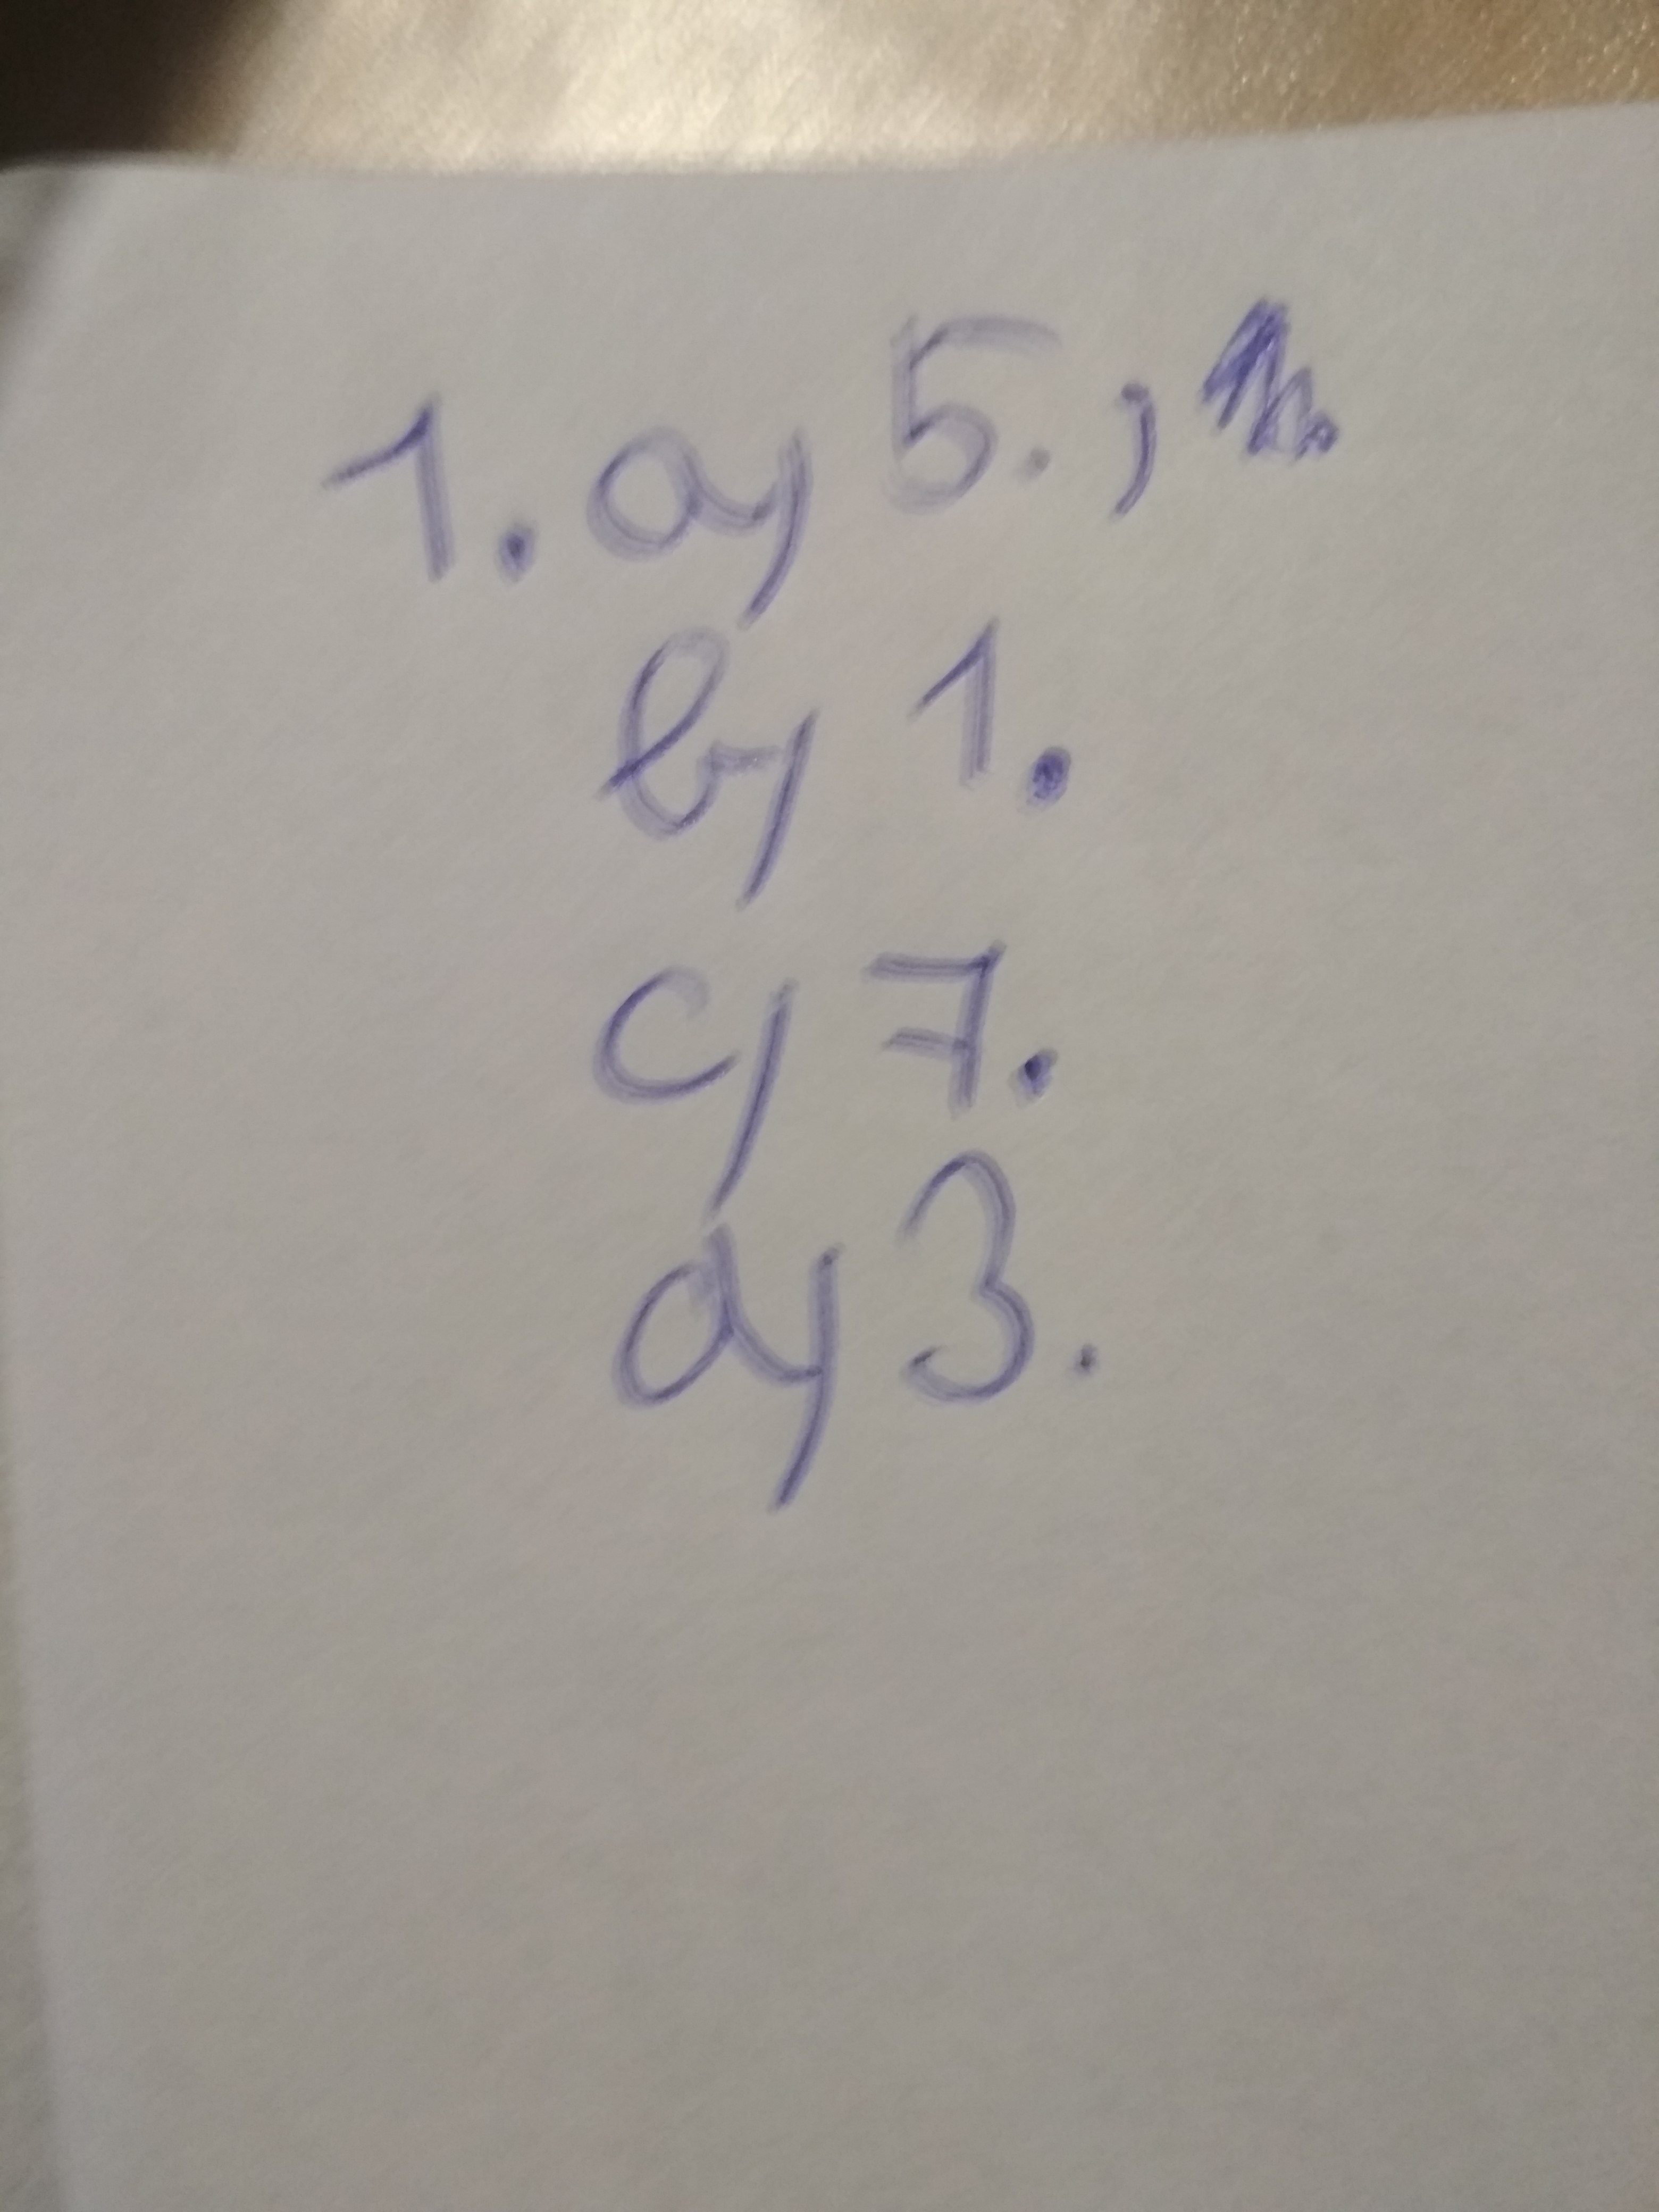 1. a) 5.,
b) 1.
c) 7.
d) 3.